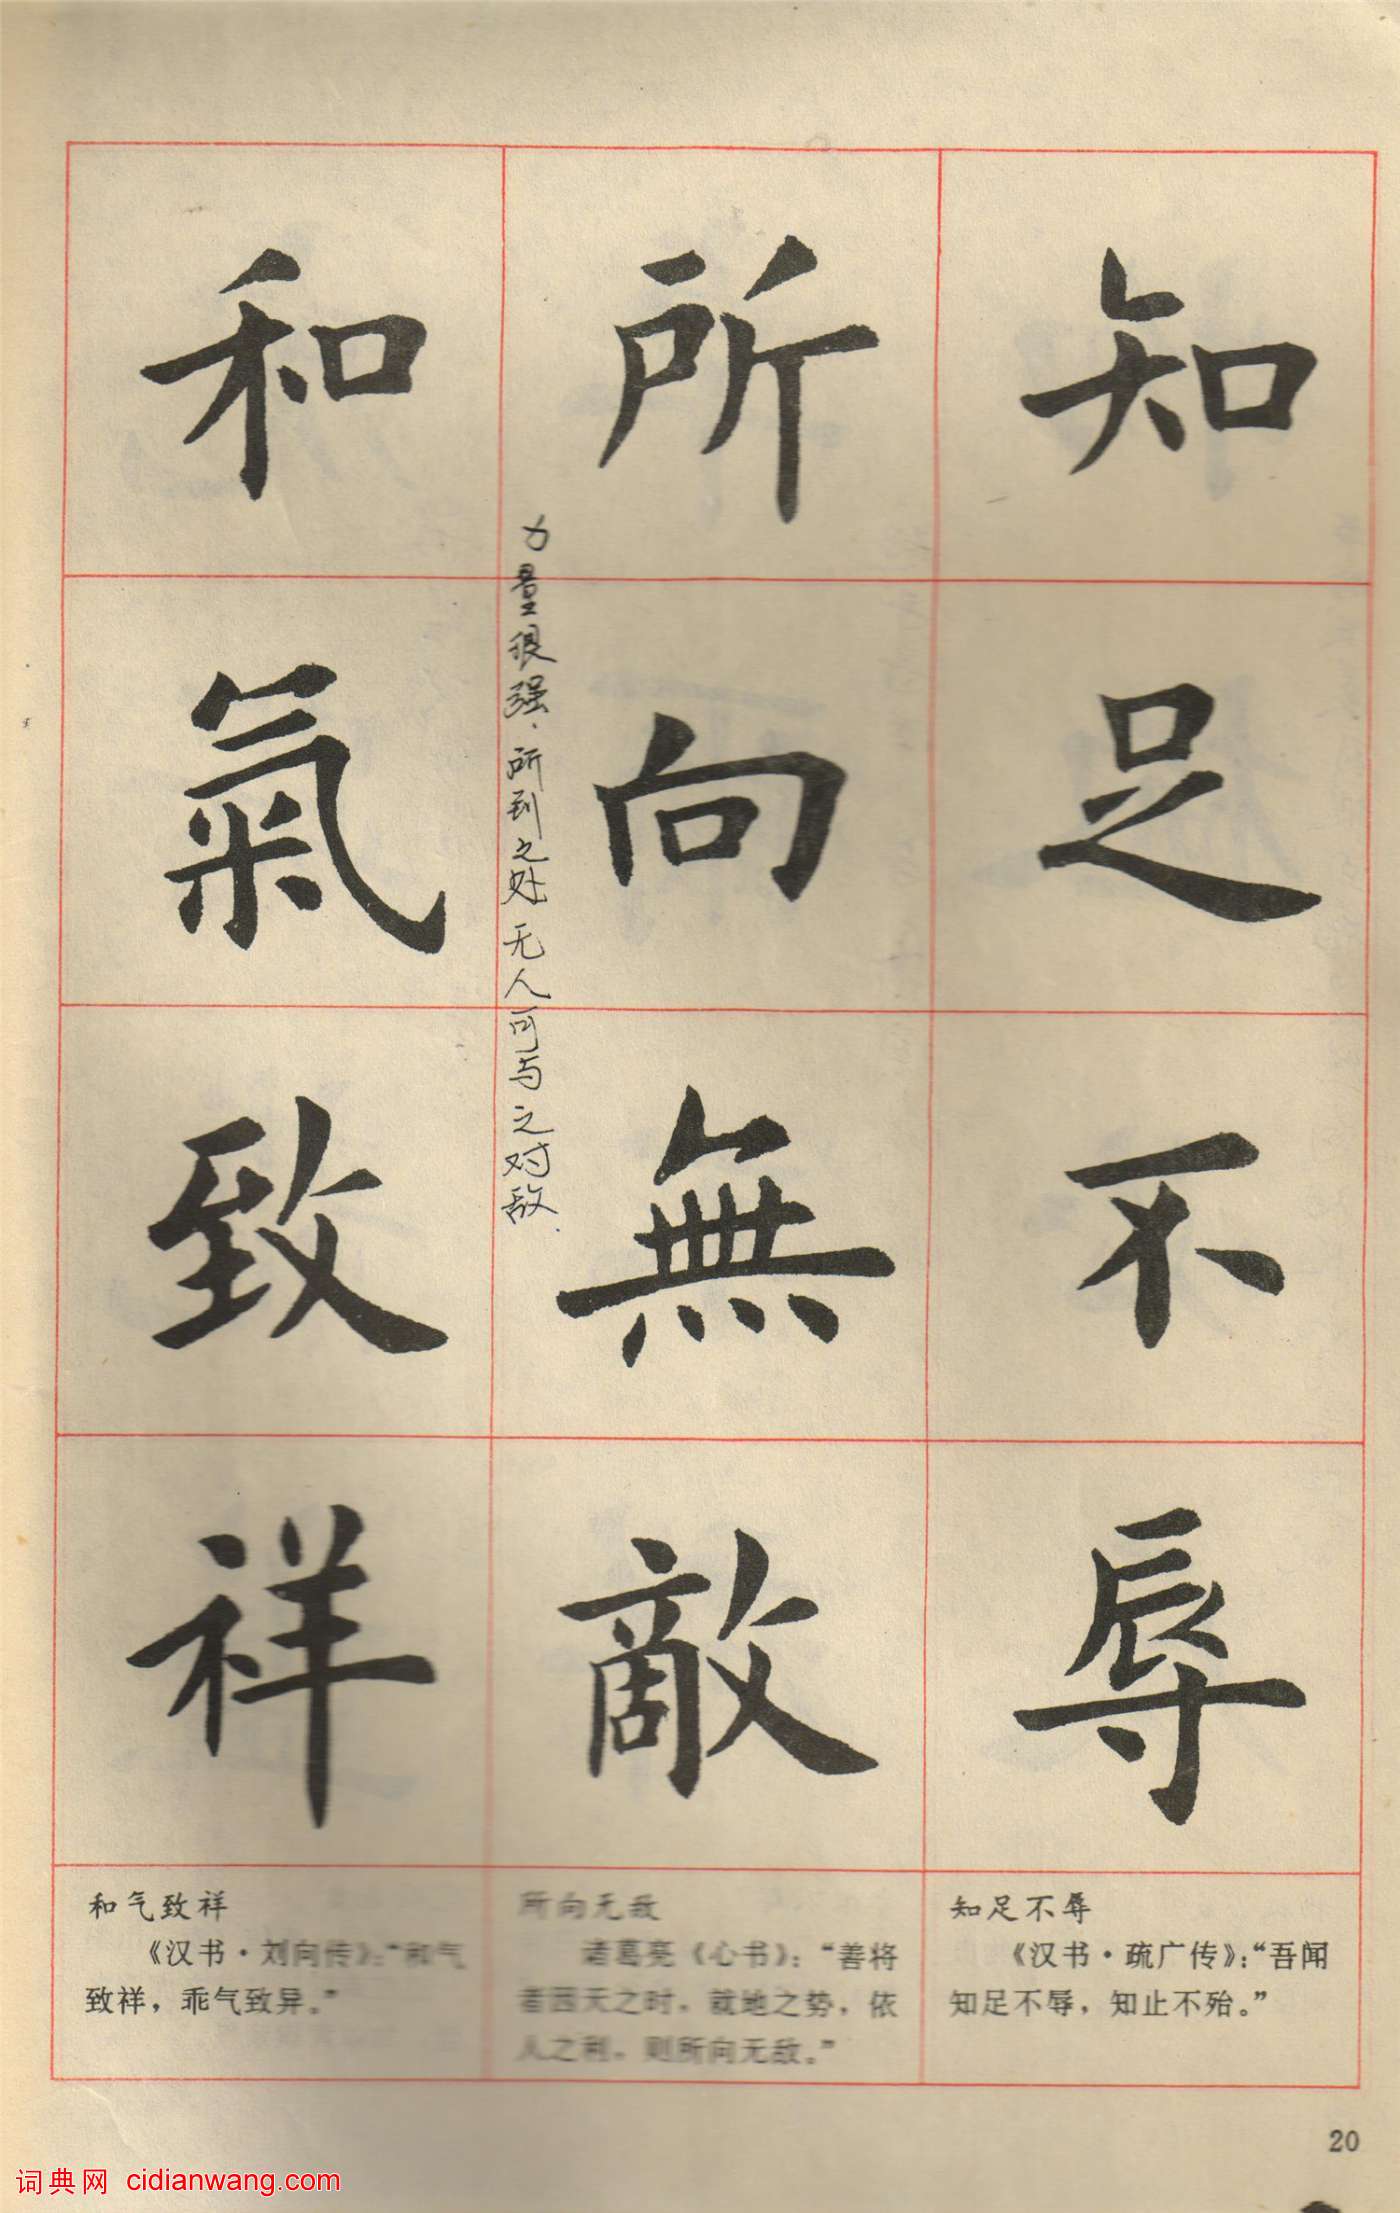 知足不辱
所向無敵
和氣致祥
力量很强，所到之处无人可与之对敌.
知足不辱
《汉书·疏广传》：“吾闻
知足不辱，知止不殆。”
所向无敌
诸葛亮《心书》：“善将
者因天之时，就地之势，依
人之利，则所向无敌。”
和气致祥
《汉书·刘向传》：“和气
致祥，乖气致异。”
20
词典网 cidianwang.com